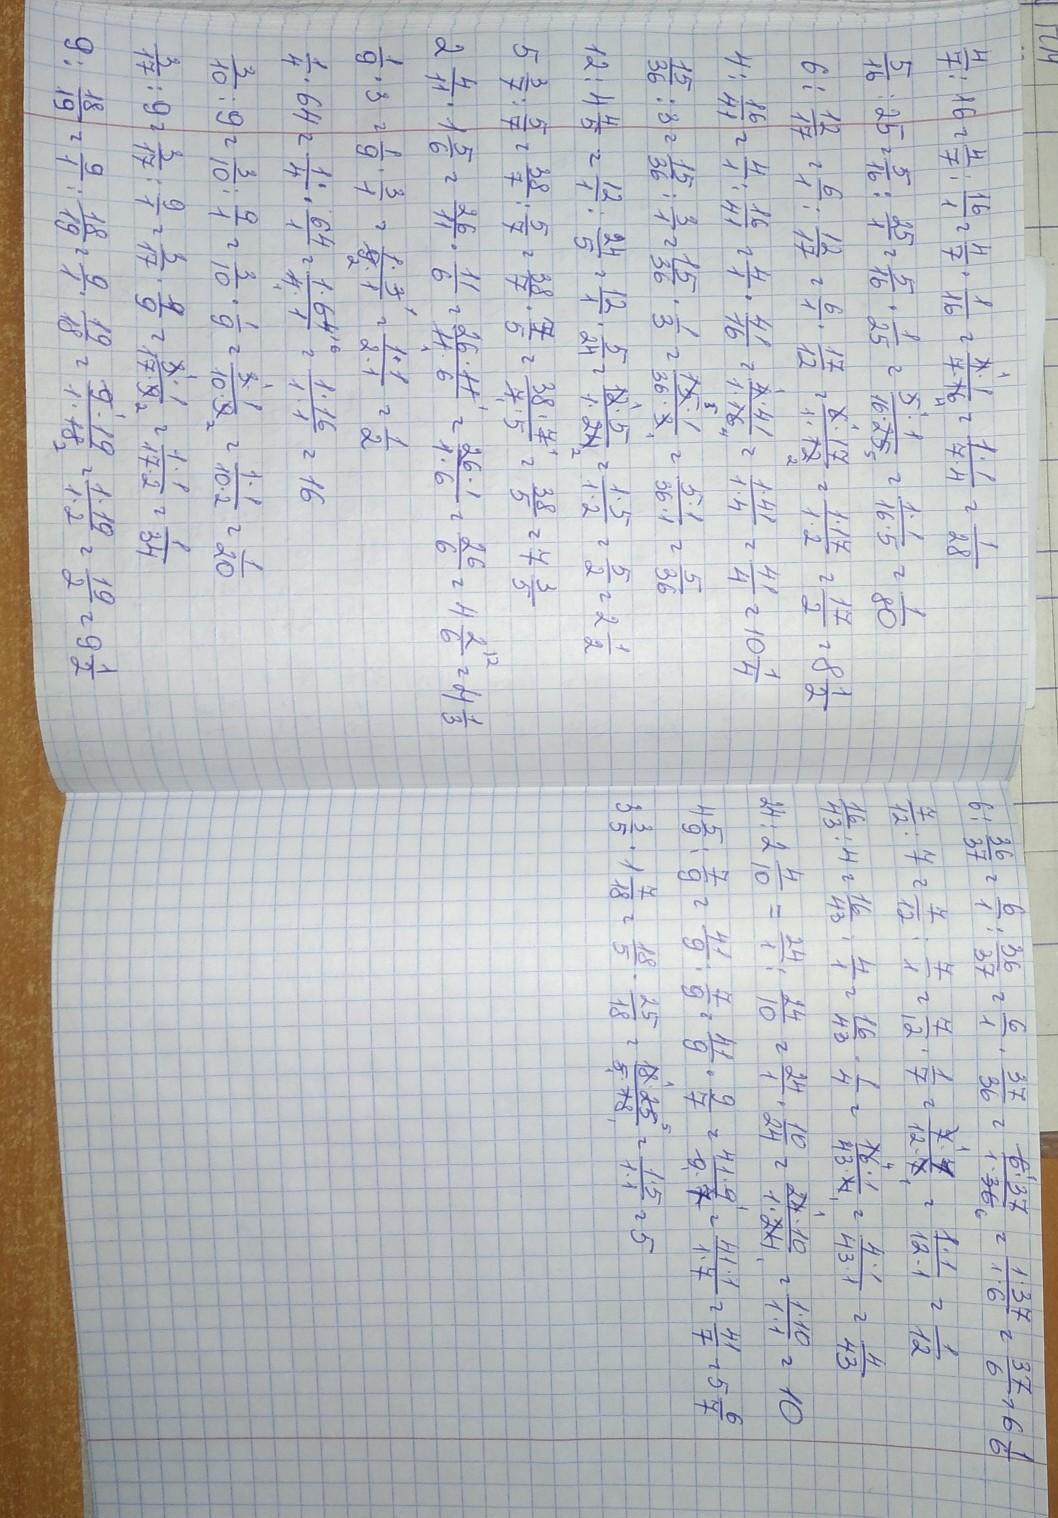 4/7 : 16 = 4/7 : 16/1 = 4/7 · 1/16 = 4·1/7·16 = 1·1/7·4 = 1/28
5/16 : 25 = 5/16 : 25/1 = 5/16 · 1/25 = 5·1/16·25 = 1·1/16·5 = 1/80
6 : 12/17 = 6/1 : 12/17 = 6/1 · 17/12 = 6·17/1·12 = 1·17/1·2 = 17/2 = 8 1/2
4 : 16/41 = 4/1 : 16/41 = 4/1 · 41/16 = 4·41/1·16 = 1·41/1·4 = 41/4 = 10 1/4
15/36 : 3 = 15/36 : 3/1 = 15/36 · 1/3 = 15·1/36·3 = 5·1/36·1 = 5/36
12 : 4 4/5 = 12/1 : 24/5 = 12/1 · 5/24 = 12·5/1·24 = 1·5/1·2 = 5/2 = 2 1/2
5 3/7 : 5/7 = 38/7 : 5/7 = 38/7 · 7/5 = 38·7/7·5 = 38/5 = 7 3/5
2 4/11 · 1 5/6 = 26/11 · 11/6 = 26·11/11·6 = 26·1/1·6 = 26/6 = 4 2/6 = 4 1/3
1/9 · 3 = 1/9 · 3/1 = 1·3/9·1 = 1·1/2·1 = 1/2
1/4 · 64 = 1/4 · 64/1 = 1·64/4·1 = 1·16/1·1 = 16
3/10 : 9 = 3/10 : 9/1 = 3/10 · 1/9 = 3·1/10·9 = 1·1/10·2 = 1/20
3/17 : 9 = 3/17 : 9/1 = 3/17 · 1/9 = 3·1/17·9 = 1·1/17·2 = 1/34
9 : 18/19 = 9/1 : 18/19 = 9/1 · 19/18 = 9·19/1·18 = 1·19/1·2 = 19/2 = 9 1/2
6 : 36/37 = 6/1 : 36/37 = 6/1 · 37/36 = 6·37/1·36 = 1·37/1·6 = 37/6 = 6 1/6
7/12 : 7 = 7/12 : 7/1 = 7/12 · 1/7 = 7·1/12·7 = 1·1/12·1 = 1/12
16/43 : 4 = 16/43 : 4/1 = 16/43 · 1/4 = 16·1/43·4 = 4·1/43·1 = 4/43
24 : 2 4/10 = 24/1 : 24/10 = 24/1 · 10/24 = 24·10/1·24 = 1·10/1·1 = 10
4 5/9 : 7/9 = 41/9 : 7/9 = 41/9 · 9/7 = 41·9/9·7 = 41·1/1·7 = 41/7 = 5 6/7
3 3/5 · 1 7/18 = 18/5 · 25/18 = 18·25/5·18 = 1·5/1·1 = 5